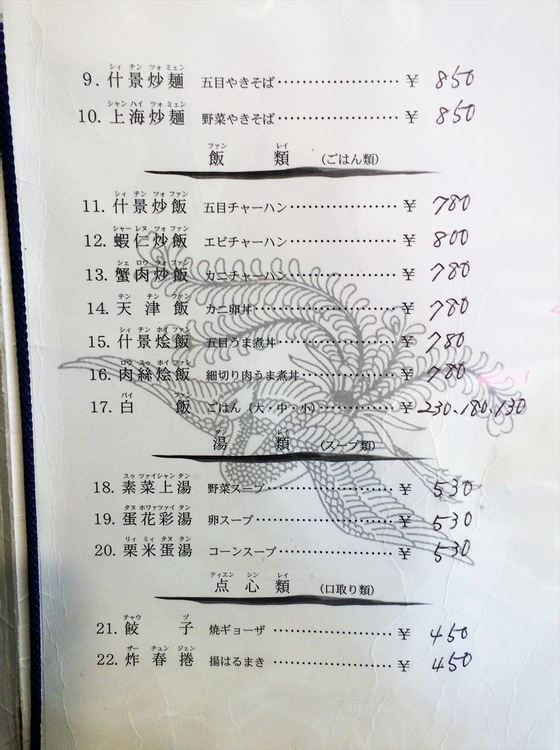 シィ チン ツォ ミェン
9. 什景炒麺 五目やきそば ¥ 850
シャン ハイ ツォ ミェン
10. 上海炒麺 野菜やきそば ¥ 850
ファン レイ
飯 類 (ごはん類)
シィ チン ツォ ファン
11. 什景炒飯 五目チャーハン ¥ 780
シャー レヌ ツォ ファン
12. 蝦仁炒飯 エビチャーハン ¥ 800
シェ ロウ ツォ ファン
13. 蟹肉炒飯 カニチャーハン ¥ 780
テン チン ファン
14. 天津飯 カニ卵丼 ¥ 780
シィ チン ホイ ファン
15. 什景燴飯 五目うま煮丼 ¥ 780
ロウ スゥ ホイ ファン
16. 肉絲燴飯 細切り肉うま煮丼 ¥ 780
パイ ファン
17. 白 飯 ごはん (大・中・小) ¥ 230、180、130
タン レイ
湯 類 (スープ類)
スゥ ツァイシャン タン
18. 素菜上湯 野菜スープ ¥ 530
タヌ ホワァツァイ タン
19. 蛋花彩湯 卵スープ ¥ 530
リィ ミィ タヌ タン
20. 栗米蛋湯 コーンスープ ¥ 530
ティエン シン レイ
点 心 類 (口取り類)
チャウ ツ
21. 餃 子 焼ギョーザ ¥ 450
ザー チュン ジェン
22. 炸春捲 揚はるまき ¥ 450